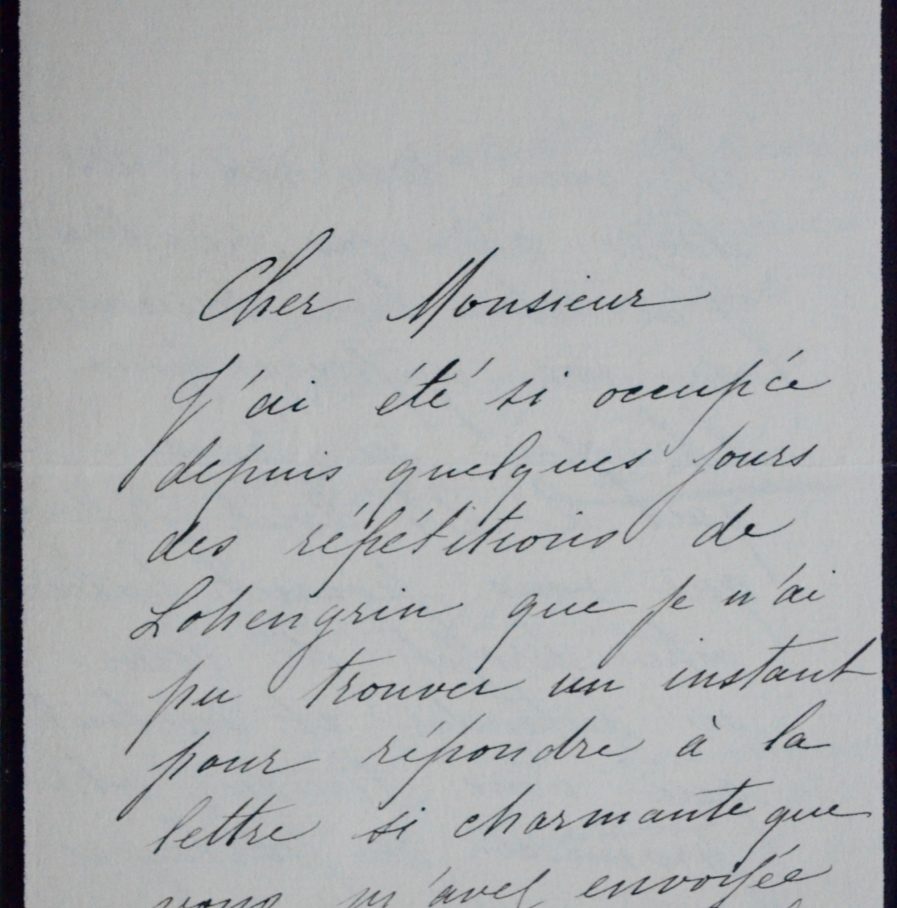 Cher Monsieur
J'ai été si occupée
depuis quelques jours
des répétitions de
Lohengrin que je n'ai
pu trouver un instant
pour répondre à la
lettre si charmante que
vous m'avez envoyée